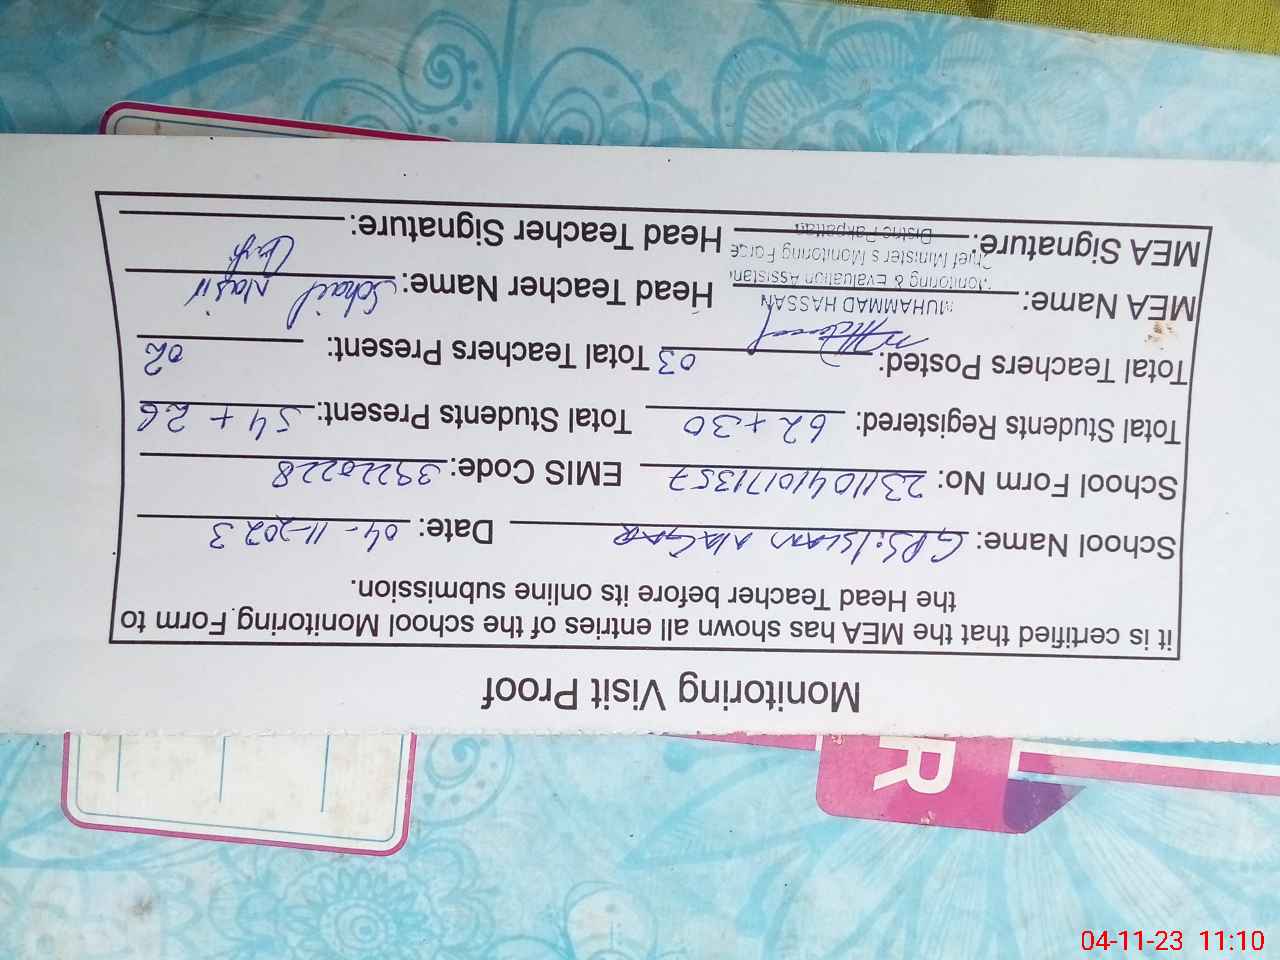 Monitoring Visit Proof
it is certified that the MEA has shown all entries of the school Monitoring Form to
the Head Teacher before its online submission.
School Name: GPS: ISLAM NAGAR Date: 04-11-2023
School Form No: 23110410171357 EMIS Code: 39220228
Total Students Registered: 62 + 30 Total Students Present: 54 + 26
Total Teachers Posted: 03 Total Teachers Present: 02
MEA Name: MUHAMMAD HASSAN Head Teacher Name: Sohail Nasir
Monitoring & Evaluation Assistant
Chief Minister's Monitoring Force
MEA Signature: District Pakpattan Head Teacher Signature:
R
04-11-23 11:10